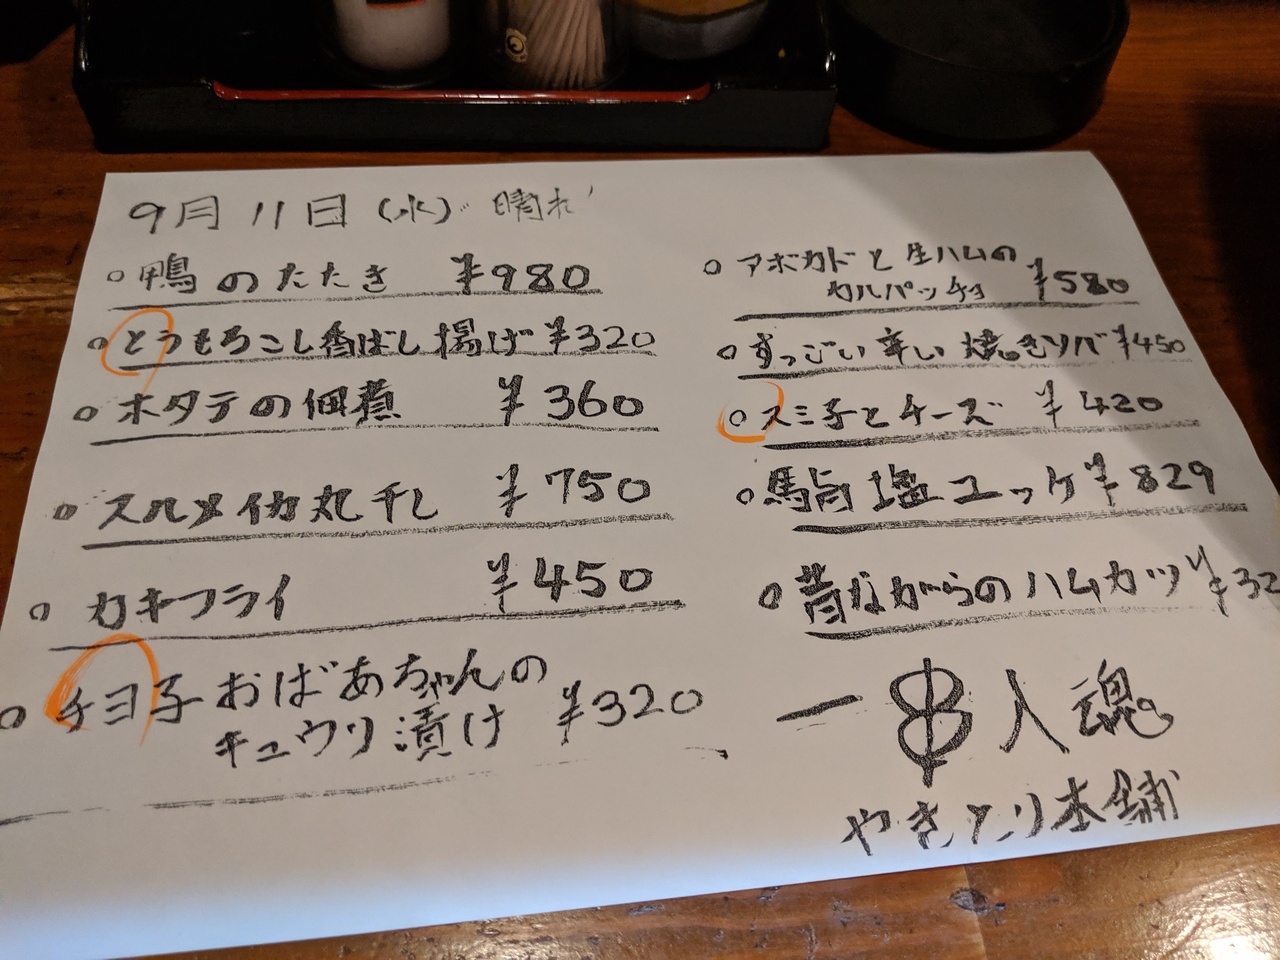 9月11日(水) 晴れ
○鴨のたたき ¥980
○とうもろこし香ばし揚げ ¥320
○ホタテの佃煮 ¥360
○スルメイカ丸干し ¥750
○カキフライ ¥450
○チヨ子おばあちゃんの
キュウリ漬け ¥320
○アボカドと生ハムの
カルパッチョ ¥580
○すっごい辛い焼きソバ ¥450
○スミ子とチーズ ¥420
○馬旨塩ユッケ ¥829
○昔ながらのハムカツ ¥32
一串入魂
やきとり本舗